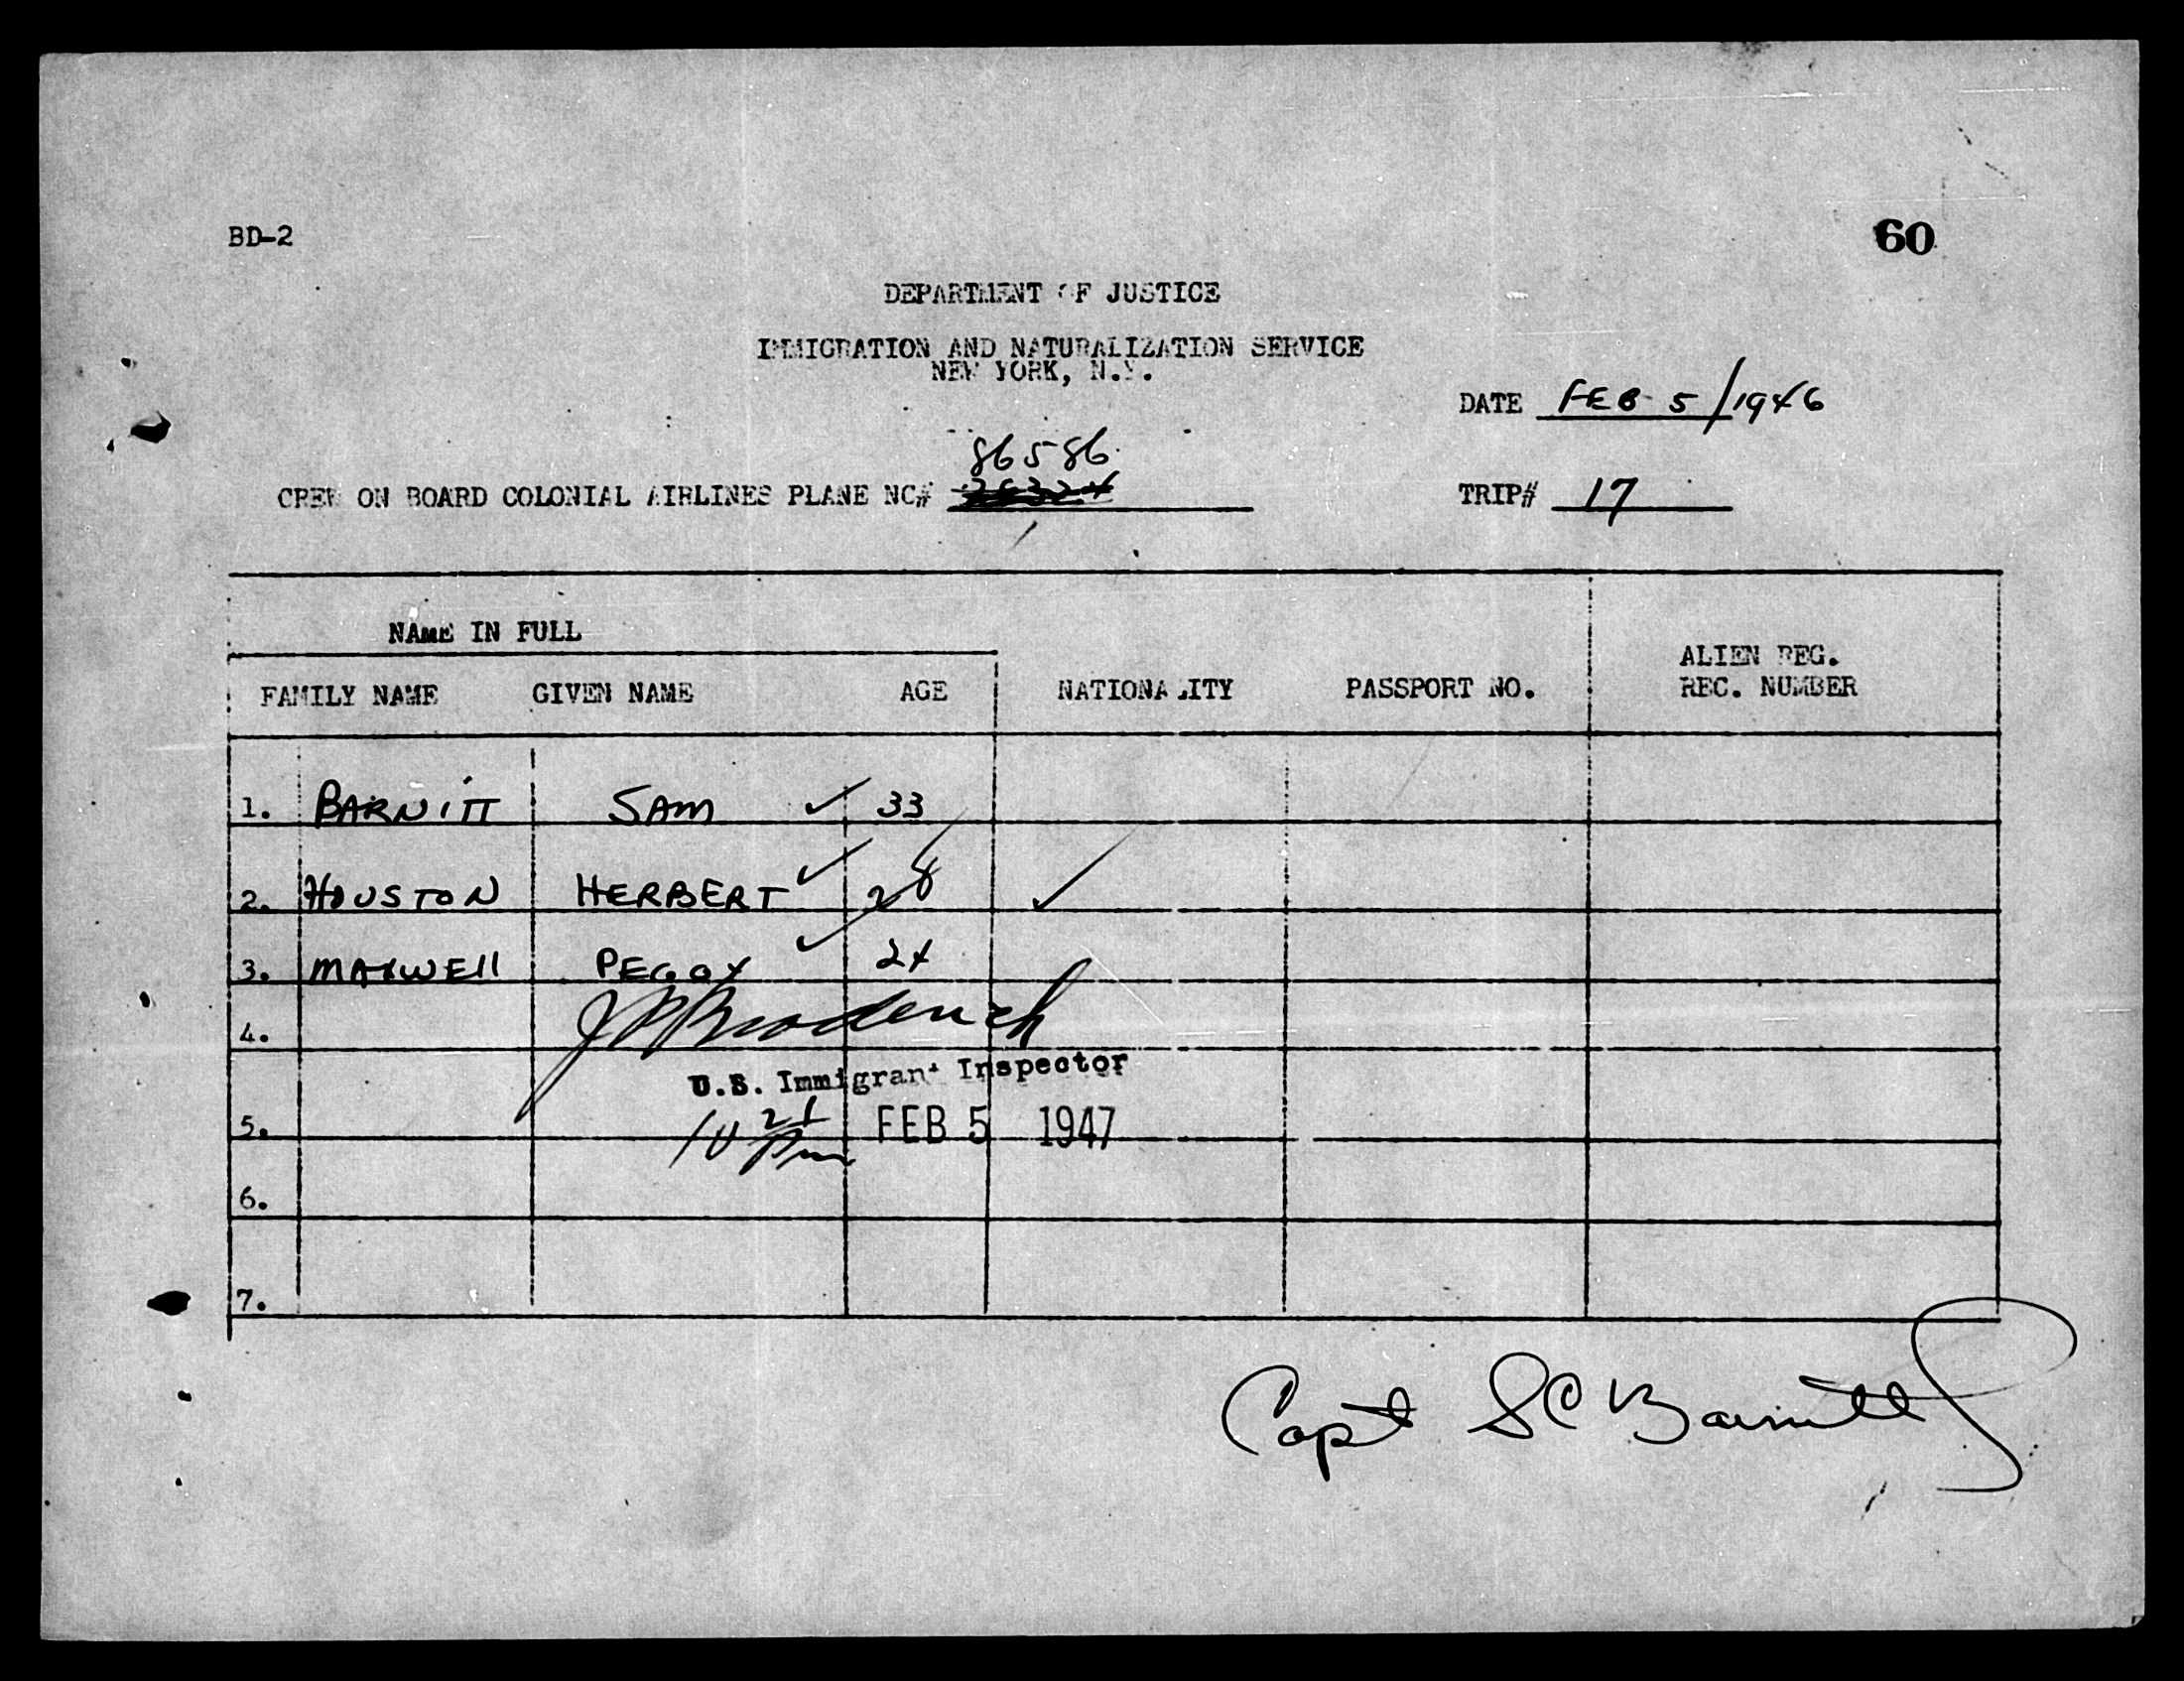 BD-2
60
DEPARTMENT OF JUSTICE
IMMIGRATION AND NATURALIZATION SERVICE
NEW YORK, N.Y.
DATE FEB 5/1946
86586
CREW ON BOARD COLONIAL AIRLINES PLANE NC#
TRIP# 17
NAME IN FULL
FAMILY NAME GIVEN NAME AGE NATIONALITY PASSPORT NO. ALIEN REG. REC. NUMBER
1. BARNITT SAM ✓ 33
2. HOUSTON HERBERT ✓ 28 ✓
3. MAXWELL PEGGY ✓ 24
4. J P Broderick
U.S. Immigrant Inspector
5. 10 21 Pm FEB 5 1947
6.
7.
Capt SC Barnitt